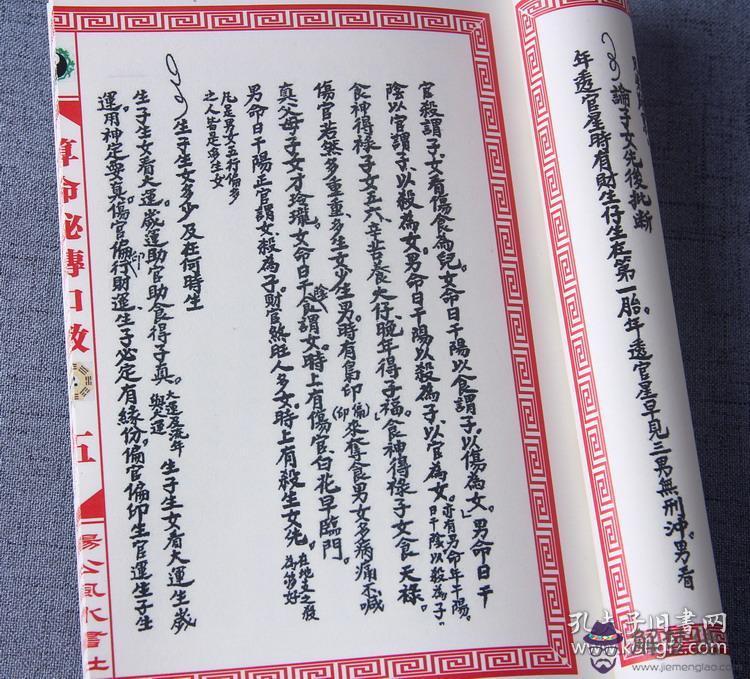 論子女先後批断
年透官星時有財生仔生在第一胎。年透官星早見三男無刑沖。男看
官殺謂子女看傷食為兒。女命日干陽以食謂子，以傷為女。男命日干
陰以官謂子以殺為女。男命日干陽以殺為子，以官為女。
亦有男命年干陽。
日干陰以殺為子。
食神得祿子女五六，辛苦養大仔，晚年得子福。食神得祿子女食天祿。
傷官若然多重重，多生女少生男。時有梟印（偏印）來奪食男女多病痛不喊
真父母子女才玲瓏。女命日干陰食謂女。時上有傷官，白花早臨門。
男命日干陽正官謂女殺為子財官煞旺人多女。時上有殺生女先。
在地支之殺
為第好
凡是男女五行偏多
之人皆定多生女
生子生女多少及在何時生
生子生女看大運。歲運助官助食得子真。
大運及流年
生子生女看大運生歲
運用神定要真。傷官偏印行財運生子必定有緣份。偏官偏印生官運生子生
算命秘傳口教
五
楊公風水書社
孔夫子旧书网
www.kongfz.com
解夢佬
www.jiemenglao.com